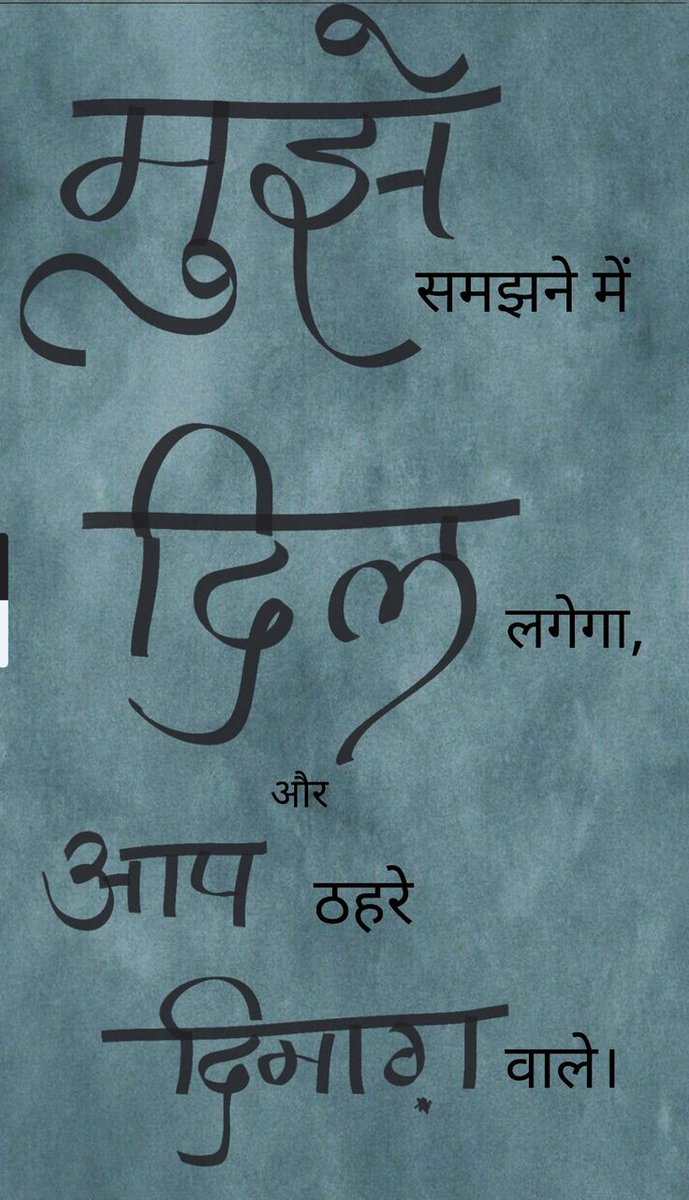 मुझे समझने में
दिल लगेगा,
और
आप ठहरे
दिमाग़ वाले।